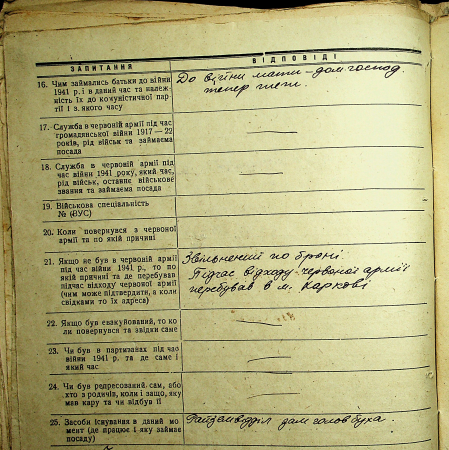 ЗАПИТАННЯ
ВІДПОВІДІ
16. Чим займались батьки до війни
1941 р. і в даний час та належ-
ність їх до комуністичної пар-
тії і з якого часу
До війни мати – дом. господ.
тепер теж.
17. Служба в червоній армії під час
громадянської війни 1917—22
років, рід військ та займаєма
посада
18. Служба в червоній армії під
час війни 1941 року, який час,
рід військ, останнє військове
звання та займаєма посада
19. Військова спеціальність
№ (ВУС)
20. Коли повернувся з червоної
армії та по якій причині
21. Якщо не був в червоній армії
під час війни 1941 р., то по
якій причині та де перебував
підчас відходу червоної армії
(чим може підтвердити, а коли
свідками то їх адреса)
Звільнений по броні.
Підчас відходу червоної армії
перебував в м. Харкові
22. Якщо був евакуйований, то ко-
ли повернувся та звідки саме
23. Чи був в партизанах під час
війни 1941 р. та де саме і
який час
24. Чи був репресований, сам, або
хто з родичів, коли і защо, яку
мав кару та чи відбув її
25. Засоби існування в даний мо-
мент (де працює і яку займає
посаду)
Райземвідділ